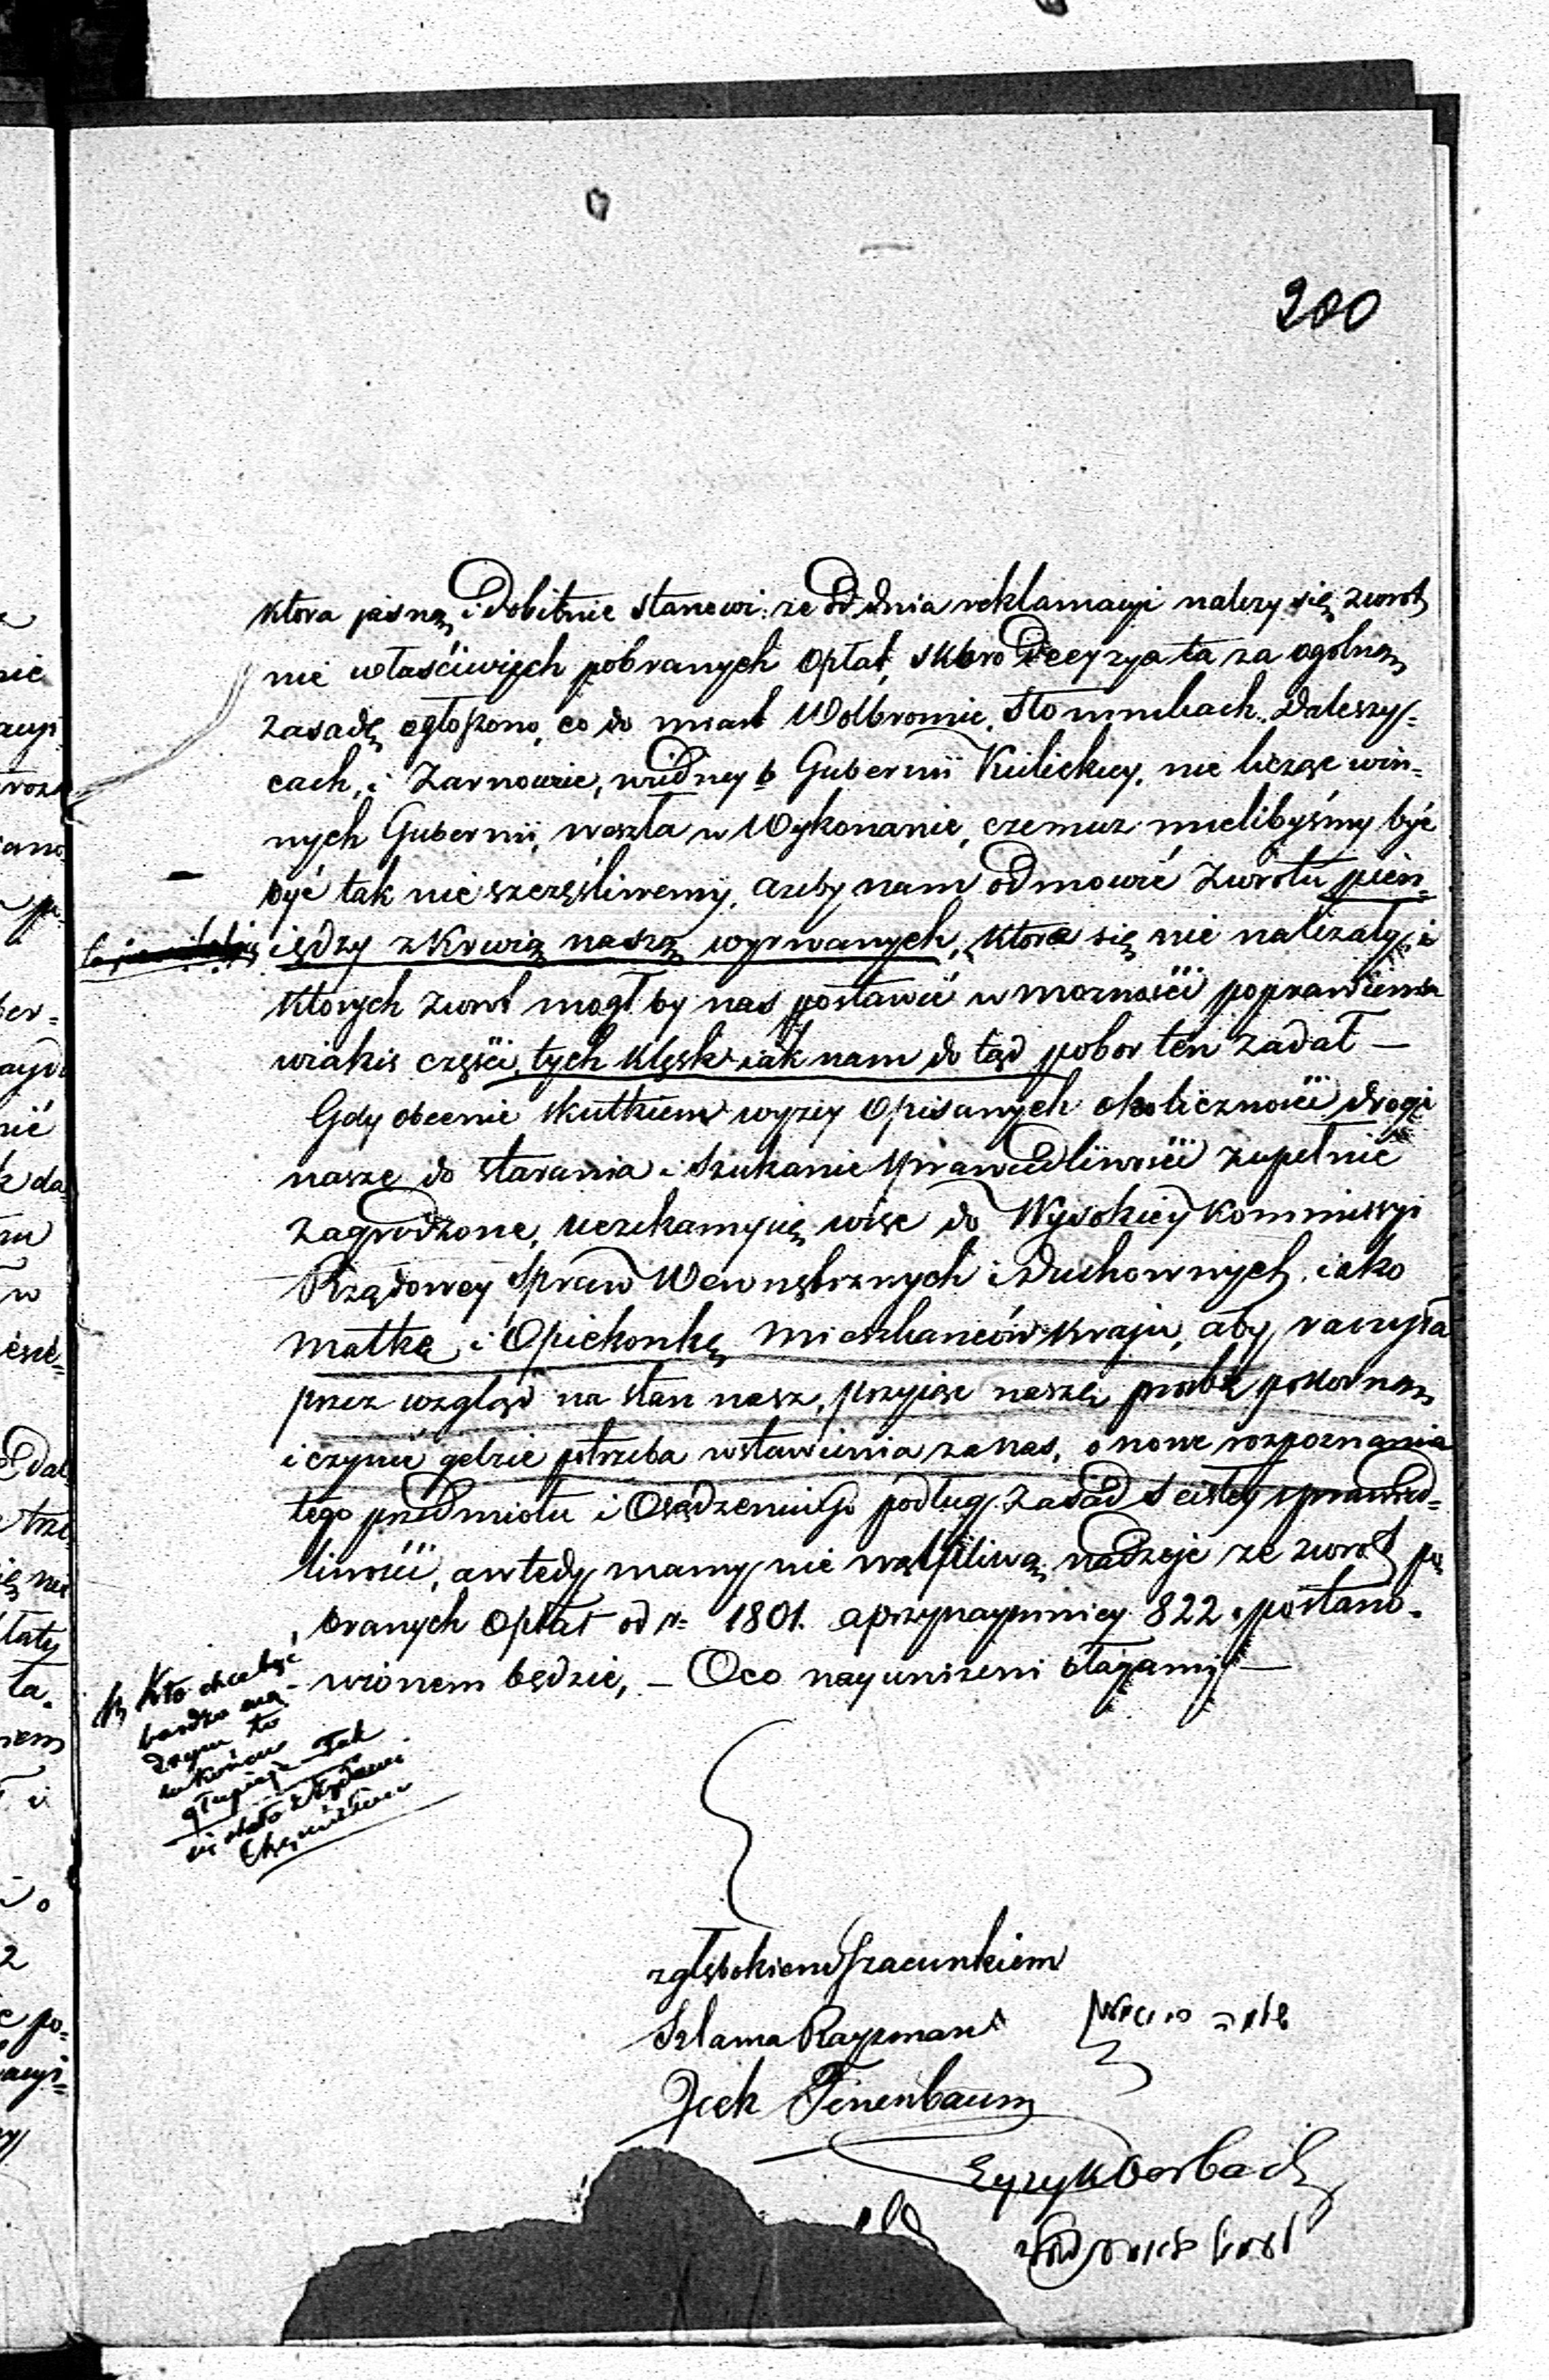 200
ktora jasną i dobitnie stanowi: że od dnia reklamacyi należy się zwrot
nie właściwych pobranych opłat, skoro decyzya ta za ogolną
zasadę ogłoszono, co do miast Wolbromie, Słomnikach, Daleszy-
cach, i Żarnowie, w iedney b Gubernii Kieleckiey, nie licząc win-
nych Gubernii, weszła w Wykonanie, czemuz mielibyśmy być
być tak nie szczęśliwemi, azeby nam odmowić zwrotu pien-
iędzy z Krwią naszą wyrwanych, ktore się nie należały, i
ktorych zwrot mogł by nas postawić w mozności poprawienia
wiakis części, tych klęsk iak nam do tąd pobor ten zadał —
Gdy obecnie skutkiem wyzey opisanych okoliczności drogi
nasze do starania i szukanie sprawiedliwości zupełnie
zagrodzone, uciekamy się więc do Wysokiey Kommissyi
Rządowey Spraw Wewnętrznych i Duchownych, iako
Matkę i Opiekonkę Mieszkanców Kraju, aby raczyła
przez wzgląd na stan nasz, przyiąć naszę prozbę pokorną
i czynić gdzie potrzeba wstawienia za nas, o nowe rozpoznania
tego przedmiotu i Osądzenia Go podług Zasad scisłey sprawied-
liwości, a wtedy mamy nie wątpliwą nadzeje ze zwrot po
branych opłat od r. 1801. a przynaymniey 822. postano-
wionem będzie, — Oco nayunizeni błagamy —
Kto chce być
bardzo mą-
drym to
w końcu
głupieje — Tak
się stało z Żydami
Chęcińskiemi
z głębokiem szacunkiem
Szlama Rayzman
Jcek Tenenbaum
Eyzyk Gorbach